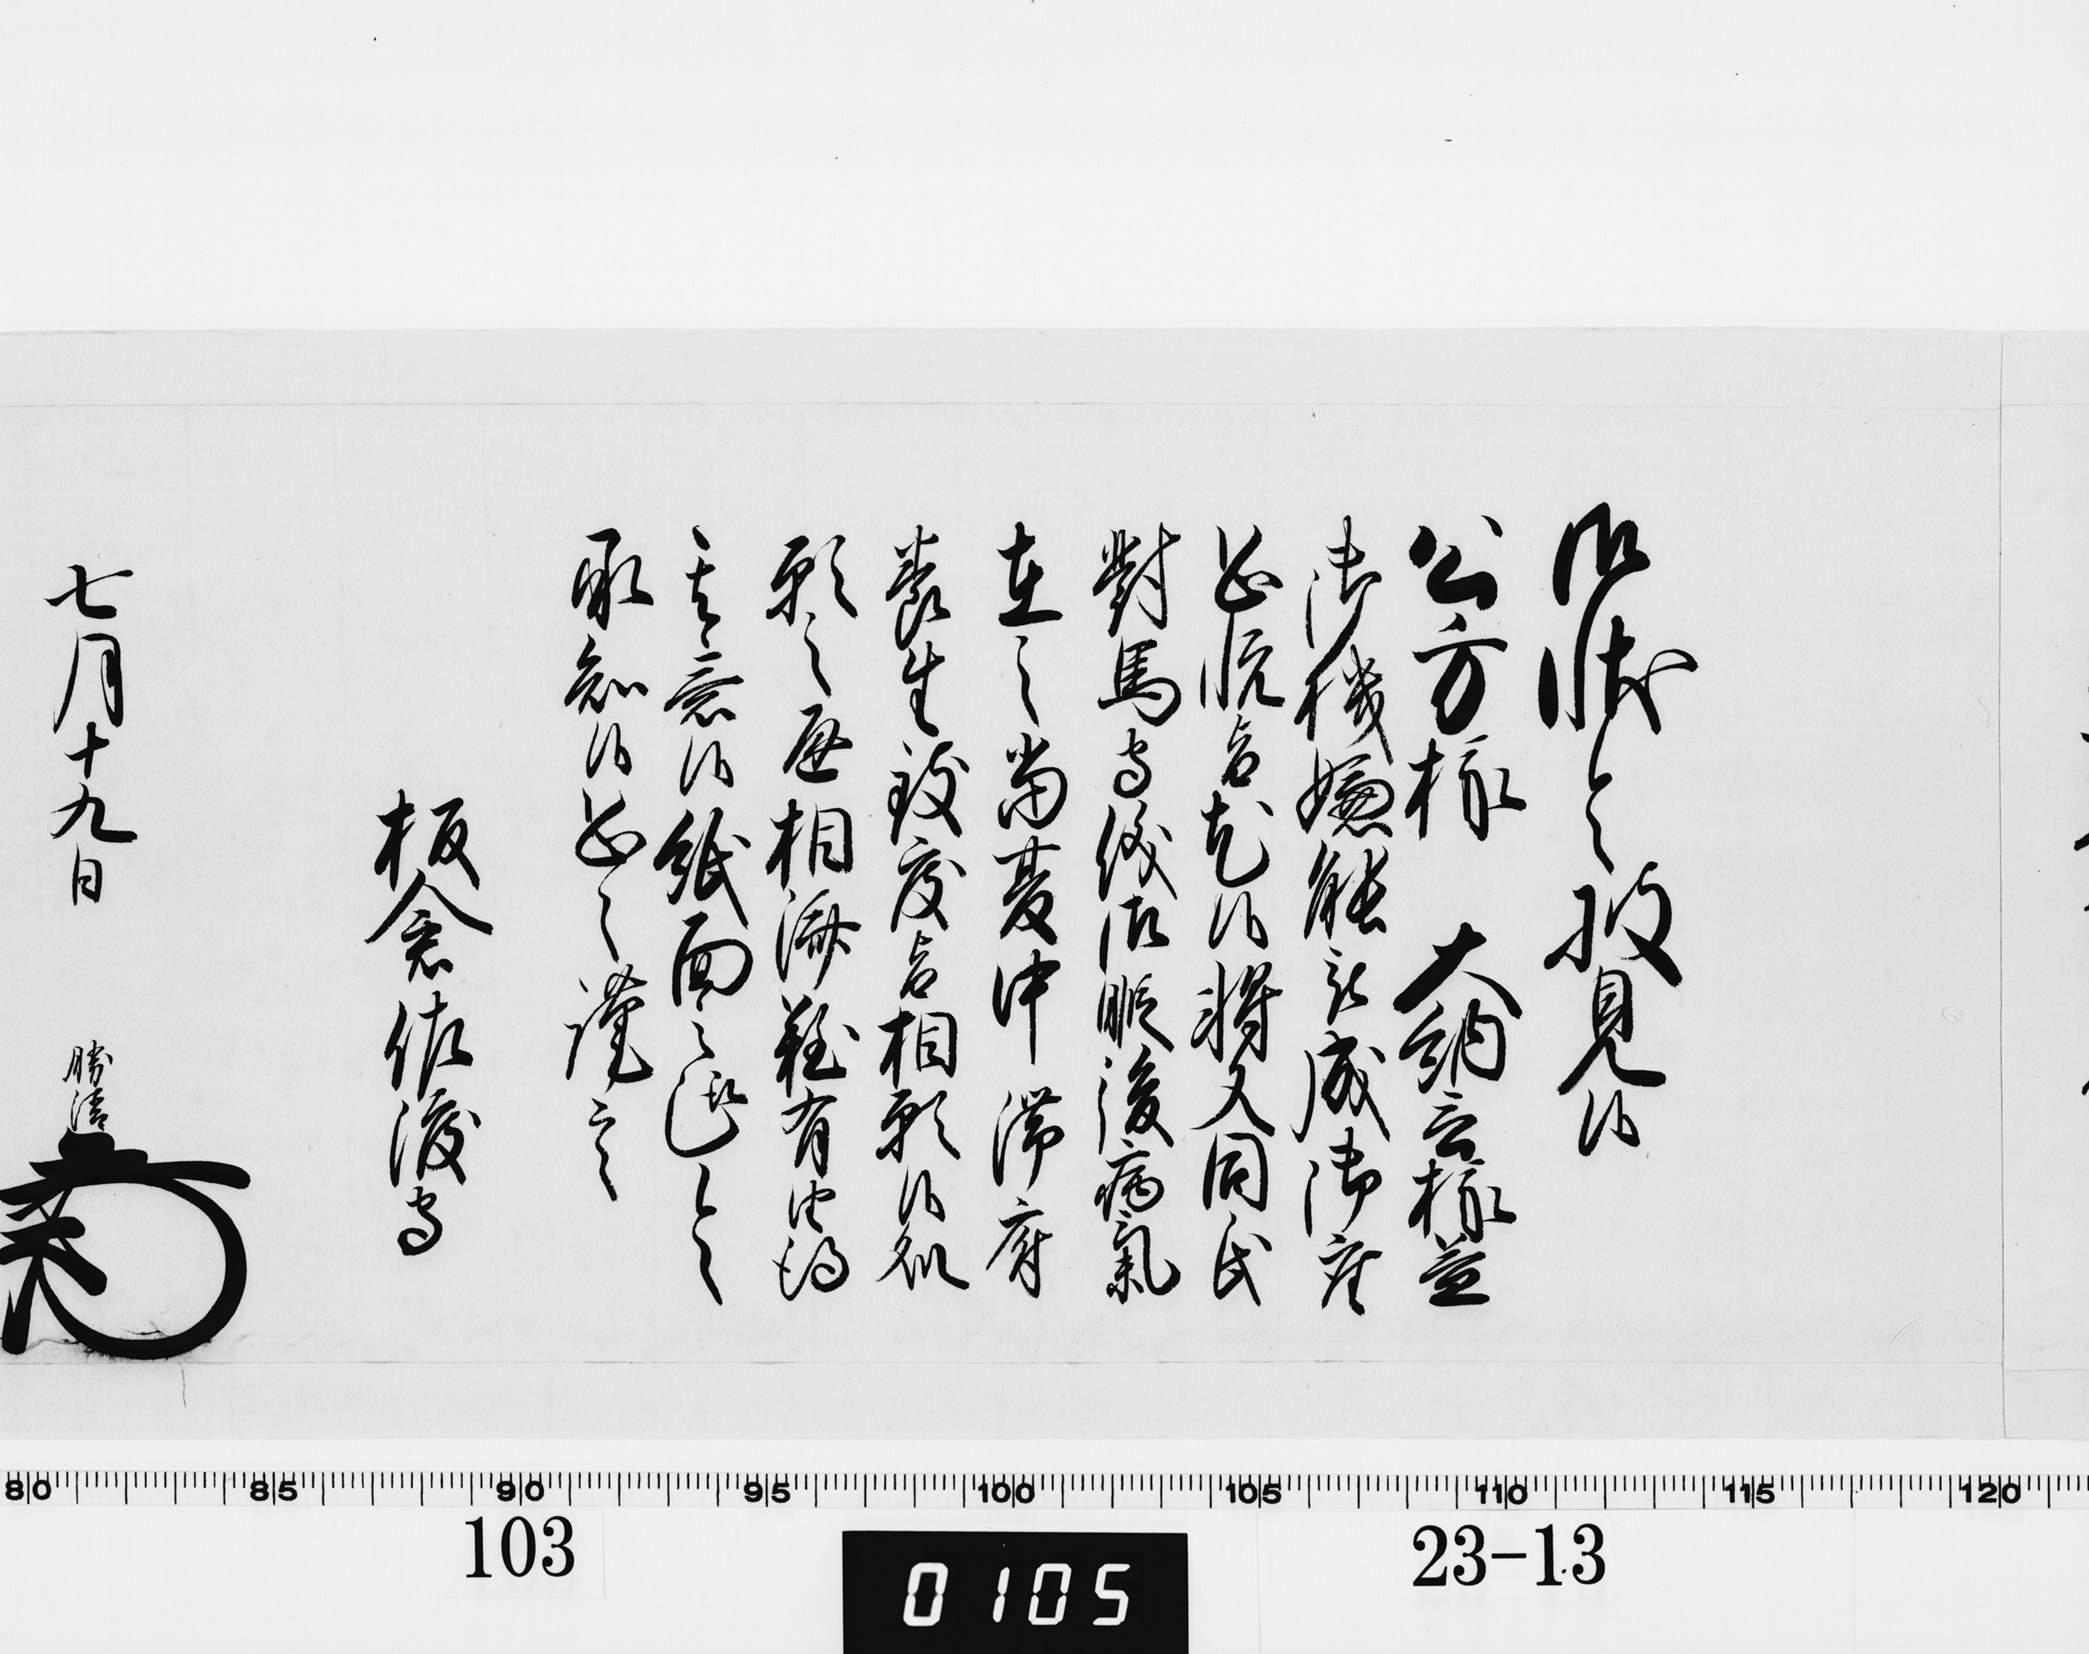 御状令披見候
公方様 大納言様益
御機嫌能被成御座
恐悦旨尤候将又同氏
對馬守儀御暇後病氣
在之当夏中滞府
養生致度旨相願候処
願之通相済難有由得
其意候紙面之趣令
承知候恐々謹言
板倉佐渡守
七月十九日
勝清
80 85 90 95 100 105 110 115 120
103
0105
23-13